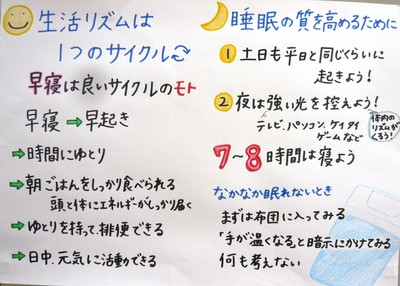 生活リズムは
1つのサイクル
早寝は良いサイクルのモト
早寝➡早起き
➡時間にゆとり
➡朝ごはんをしっかり食べられる
頭と体にエネルギーがしっかり届く
➡ゆとりを持って排便できる
➡日中、元気に活動ができる
睡眠の質を高めるために
① 土日も平日と同じくらいに
起きよう!
② 夜は強い光を控えよう!
テレビ、パソコン、ケイタイ
ゲームなど
体内の
リズムが
くるう!
7〜8時間は寝よう
なかなか眠れないとき
まずは布団に入ってみる
「手が温くなる」と暗示にかけてみる
何も考えない